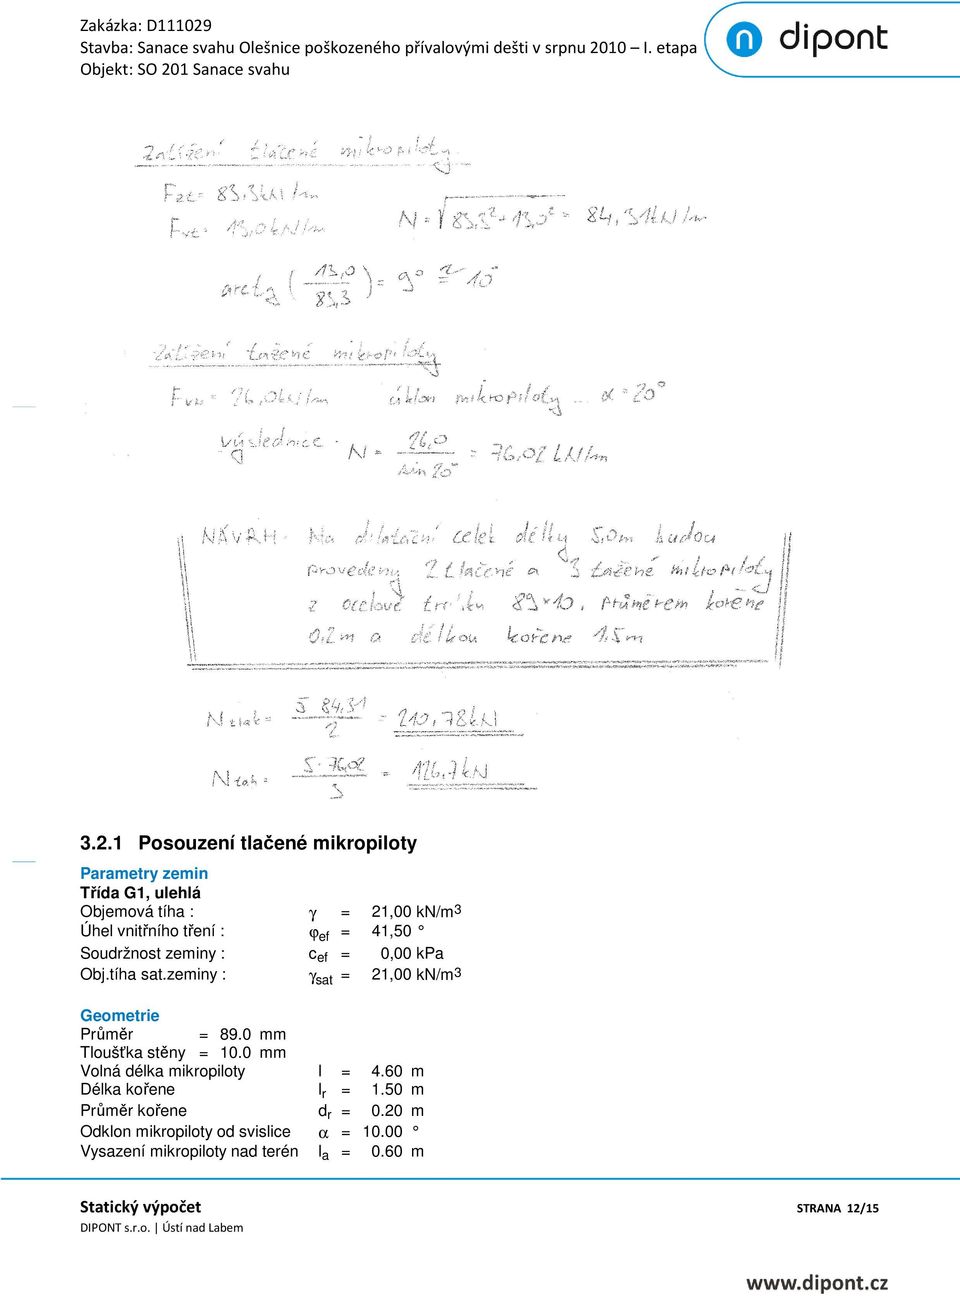 Zakázka: D111029
Stavba: Sanace svahu Olešnice poškozeného přívalovými dešti v srpnu 2010 – I. etapa
Objekt: SO 201 Sanace svahu
dipont
Zatížení tlačené mikropiloty
Fzt= 83,3kN/m
Fvt= 13,0kN/m N=√83,3²+13,0² = 84,31kN/m
arctg (13,0/83,3) = 9° ≅ 10°
Zatížení tažené mikropiloty
= 26,0kN/m úklon mikropiloty ... α=20°
výslednice N = 26,0/sin 20° = 76,02 kN/m
NÁVRH: Na dilatační celek délky 5,0m budou
provedeny 2 tlačené a 3 tažené mikropiloty
z ocelové trubky 89×10, průměrem kořene
0,2m a délkou kořene 1,5m
Ntlak= 5·84,31/2 = 210,78kN
Ntah= 5·76,02/3 = 126,7kN
3.2.1 Posouzení tlačené mikropiloty
Parametry zemin
Třída G1, ulehlá
Objemová tíha : γ = 21,00 kN/m3
Úhel vnitřního tření : φef = 41,50 °
Soudržnost zeminy : cef = 0,00 kPa
Obj.tíha sat.zeminy : γsat = 21,00 kN/m3
Geometrie
Průměr = 89.0 mm
Tloušťka stěny = 10.0 mm
Volná délka mikropiloty l = 4.60 m
Délka kořene lr = 1.50 m
Průměr kořene dr = 0.20 m
Odklon mikropiloty od svislice α = 10.00 °
Vysazení mikropiloty nad terén la = 0.60 m
Statický výpočet STRANA 12/15
DIPONT s.r.o. | Ústí nad Labem
www.dipont.cz